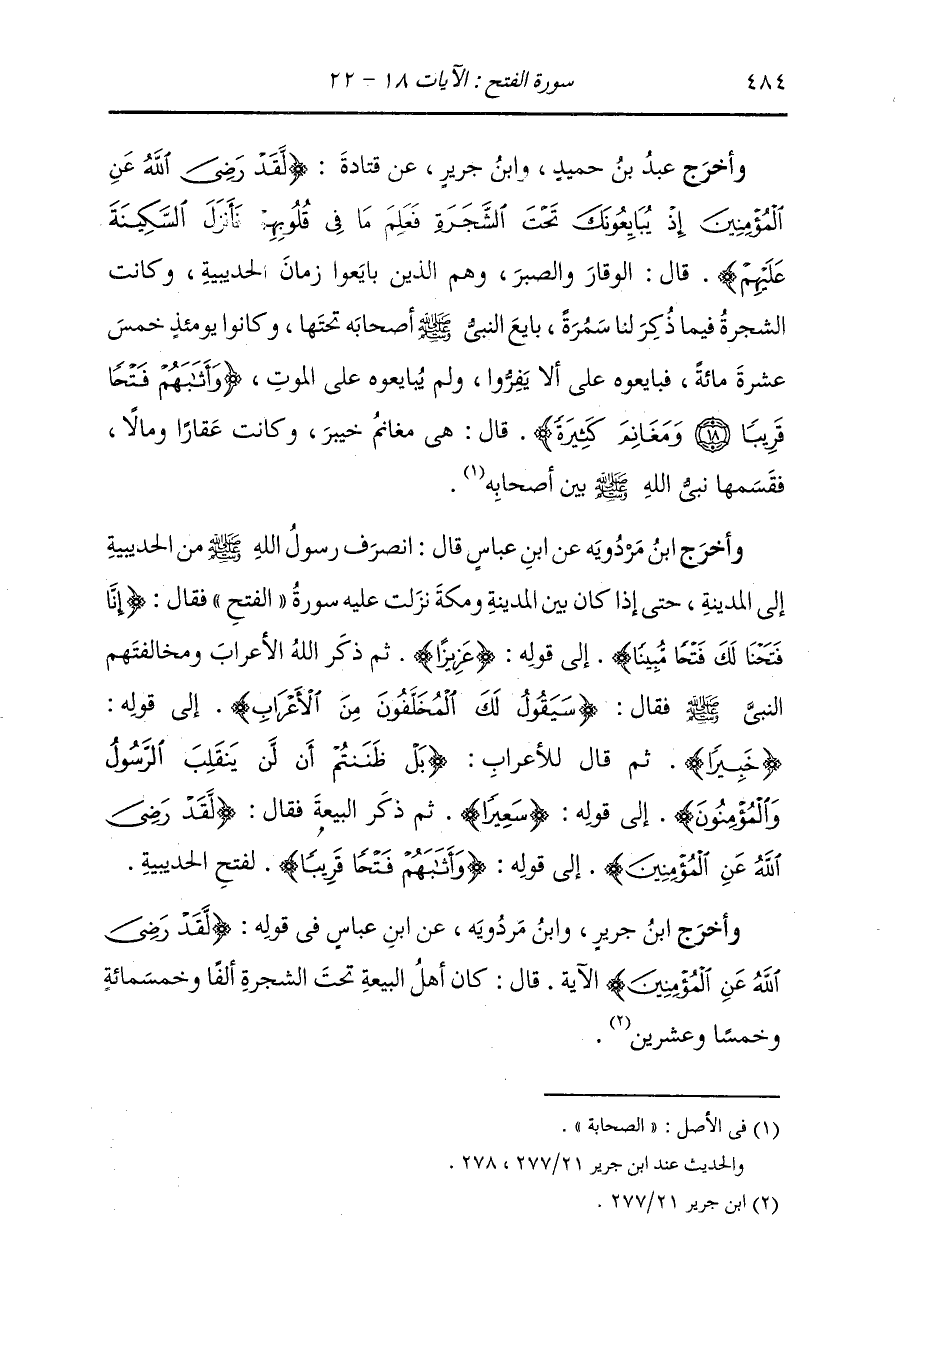 ٤٨٤ سورة الفتح : الآيات ١٨ - ٢٢
وأخرَج عبدُ بنُ حميدٍ ، وابنُ جريرٍ ، عن قتادةَ : ﴿لَّقَدْ رَضِىَ ٱللَّهُ عَنِ
ٱلْمُؤْمِنِينَ إِذْ يُبَايِعُونَكَ تَحْتَ ٱلشَّجَرَةِ فَعَلِمَ مَا فِى قُلُوبِهِمْ فَأَنزَلَ ٱلسَّكِينَةَ
عَلَيْهِمْ﴾ . قال : الوقارَ والصبرَ ، وهم الذين بايَعوا زمانَ الحديبيةِ ، وكانت
الشجرةُ فيما ذُكِرَ لنا سَمُرَةً ، بايعَ النبىُّ ﷺ أصحابَه تحتَها ، وكانوا يومئذٍ خمسَ
عشرةَ مائةً ، فبايعوه على ألا يَفِرُّوا ، ولم يُبايعوه على الموتِ ، ﴿وَأَثَٰبَهُمْ فَتْحًا
قَرِيبًا ﴿١٨﴾ وَمَغَانِمَ كَثِيرَةً﴾ . قال : هى مغانمُ خيبرَ ، وكانت عَقارًا ومالًا ،
فقَسَمها نبىُّ اللهِ ﷺ بين أصحابِه(١) .
وأخرَج ابنُ مَرْدُويَه عن ابنِ عباسٍ قال : انصرَف رسولُ اللهِ ﷺ من الحديبيةِ
إلى المدينةِ ، حتى إذا كان بين المدينةِ ومكةَ نزَلت عليه سورةُ « الفتحِ » فقال : ﴿إِنَّا
فَتَحْنَا لَكَ فَتْحًا مُّبِينًا﴾ . إلى قولِه : ﴿عَزِيزًا﴾ . ثم ذكَر اللهُ الأعرابَ ومخالفتَهم
النبىَّ ﷺ فقال : ﴿سَيَقُولُ لَكَ ٱلْمُخَلَّفُونَ مِنَ ٱلْأَعْرَابِ﴾ . إلى قولِه :
﴿خَبِيرًا﴾ . ثم قال للأعرابِ : ﴿بَلْ ظَنَنتُمْ أَن لَّن يَنقَلِبَ ٱلرَّسُولُ
وَٱلْمُؤْمِنُونَ﴾ . إلى قولِه : ﴿سَعِيرًا﴾ . ثم ذكَر البيعةَ فقال : ﴿لَّقَدْ رَضِىَ
ٱللَّهُ عَنِ ٱلْمُؤْمِنِينَ﴾ . إلى قولِه : ﴿وَأَثَٰبَهُمْ فَتْحًا قَرِيبًا﴾ . لفتحِ الحديبيةِ .
وأخرَج ابنُ جريرٍ ، وابنُ مَردُويَه ، عن ابنِ عباسٍ فى قولِه : ﴿لَّقَدْ رَضِىَ
ٱللَّهُ عَنِ ٱلْمُؤْمِنِينَ﴾ الآية . قال : كان أهلُ البيعةِ تحتَ الشجرةِ ألفًا وخمسَمائةٍ
وخمسًا وعشرين(٢) .
(١) فى الأصل : « الصحابة » .
والحديث عند ابن جرير ٢٧٧/٢١ ، ٢٧٨ .
(٢) ابن جرير ٢٧٧/٢١ .